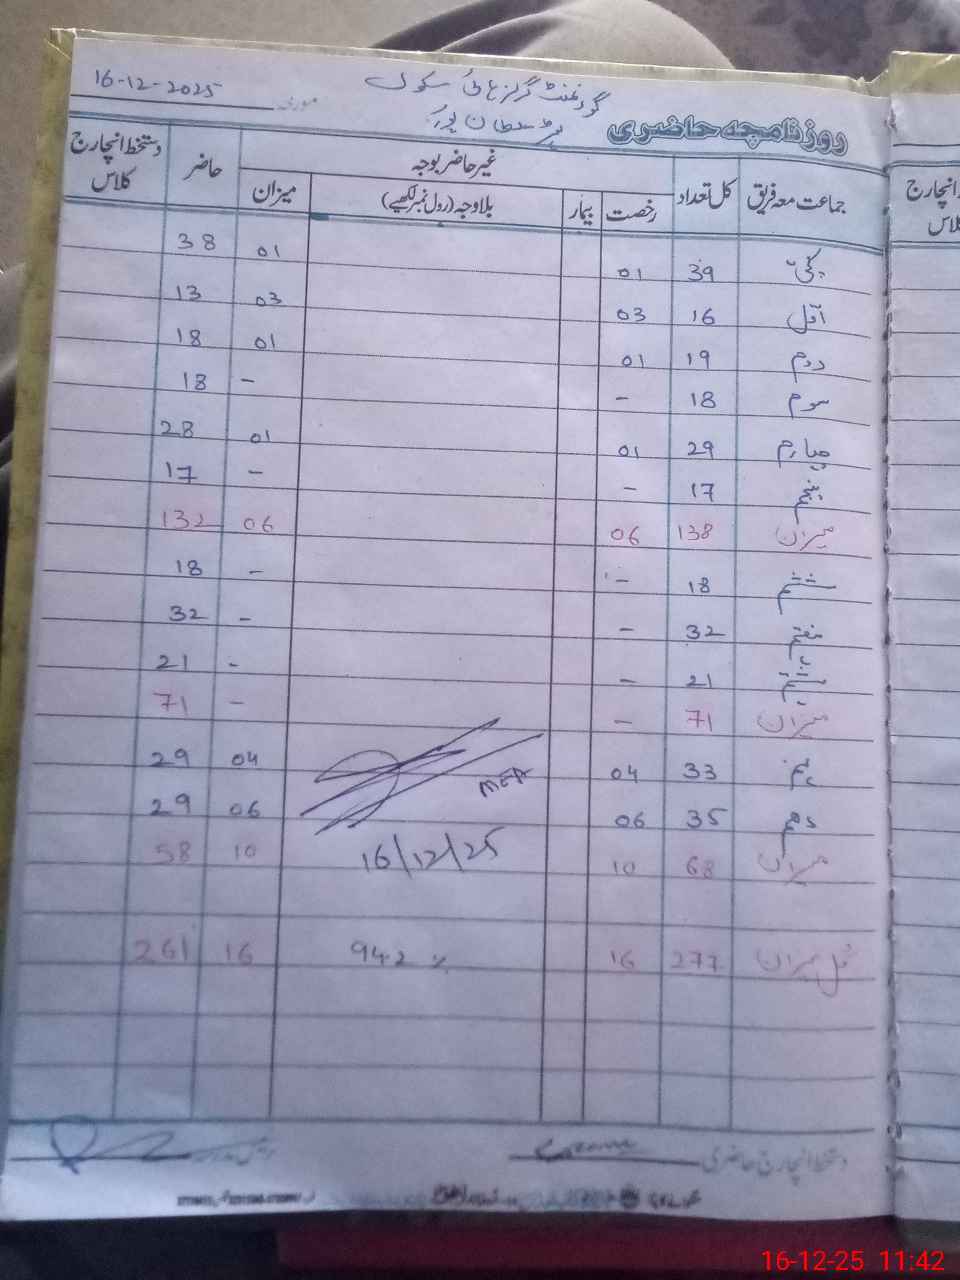 16-12-2025 مورخہ گورنمنٹ گرلز ہائی سکول
سلطان پور
روزنامچہ حاضری
جماعت معہ فریق کل تعداد غیر حاضر بوجہ حاضر دستخط انچارج کلاس
رخصت بیمار بلاوجہ (رول نمبر لکھیے) میزان
کچی 39 01 01 38
اول 16 03 03 13
دوم 19 01 01 18
سوم 18 - - 18
چہارم 29 01 01 28
پنجم 17 - - 17
میزان 138 06 06 132
ششم 18 - - 18
ہفتم 32 - - 32
ہشتم 21 - - 21
میزان 71 - - 71
نہم 33 04 04 29
MEA
دھم 35 06 06 29
میزان 68 10 16/12/25 10 58
کل میزان 277 16 942 % 16 261
دستخط انچارج حاضری
انچارج
کلاس
16-12-25 11:42